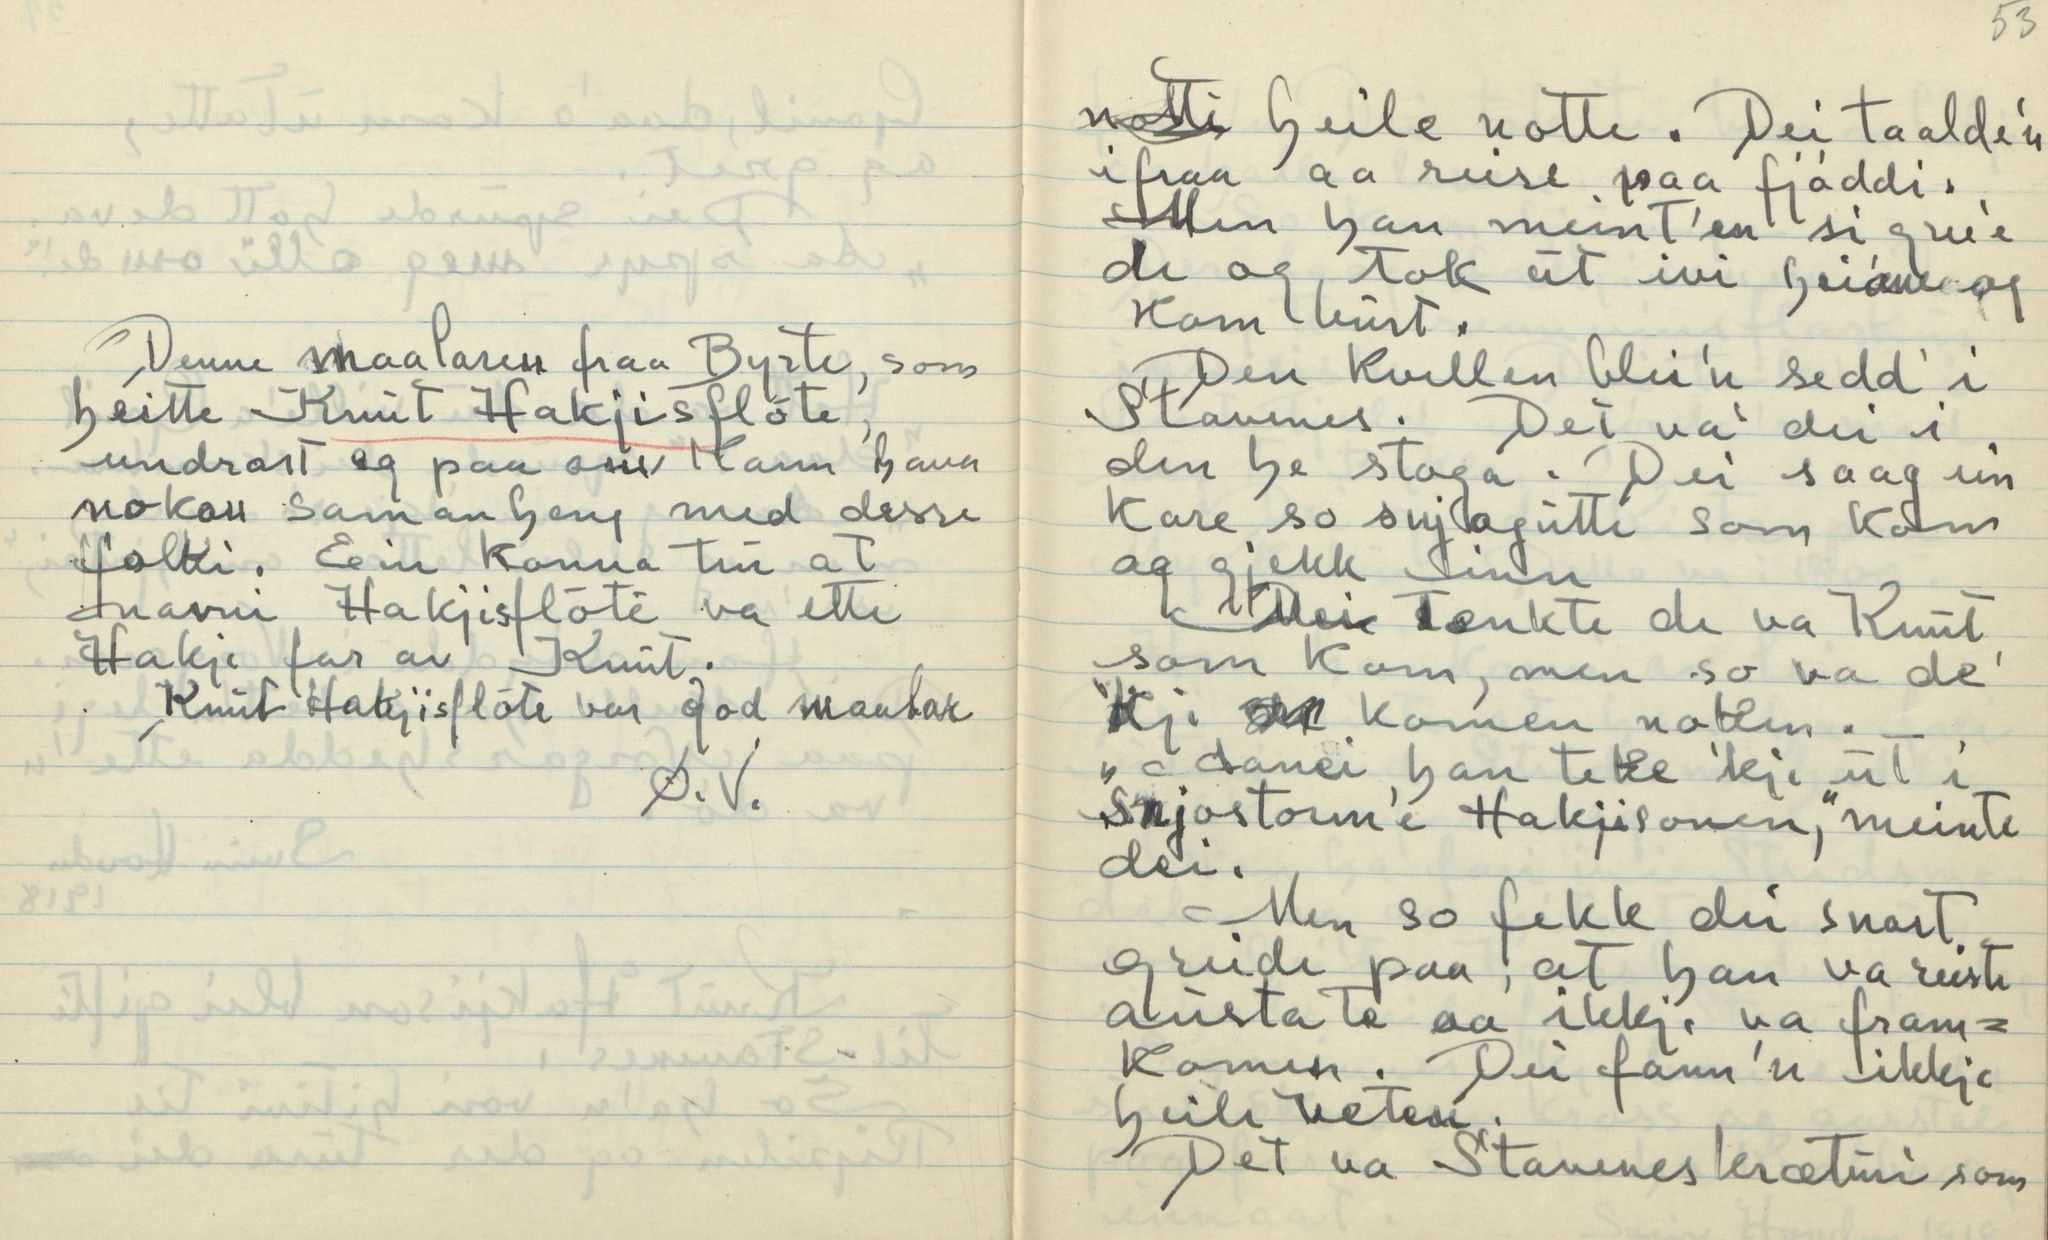 Denne maalaren fraa Byrte, som
heitte Knut Hakjisflóte,
undrast eg paa om kann hava
nokon samanheng med desse
folki. Ein kunna tru at
navni Hakjisflóte va ette
Hakje far av Knut.
Knut Hakjisflóte var god maalar
Ø.V.
53
notti heile notte. Dei taalde'n
ifraa aa reise paa fjáddi.
Men han meint'en si greie
de og tok út ivi heiane og
kom burt.
Den kvelden blei'n sedd' i
Stavenes. Det va' dei i
den he stoga. Dei saag ein
kare so snjogutte som kom
og gjekk inn
Dei tenkte de va Knut
som kom, men so va de'
'kje komen noken.
"danei han teke 'kje út i
snjostorm'e Hakjisonen," meinte
dei.
Men so fekk dei snart
greide paa, at han va reiste
austate aa ikkje va fram=
komen. Dei fann'n ikkje
heile veteren.
Det va Staveneskrœturi som